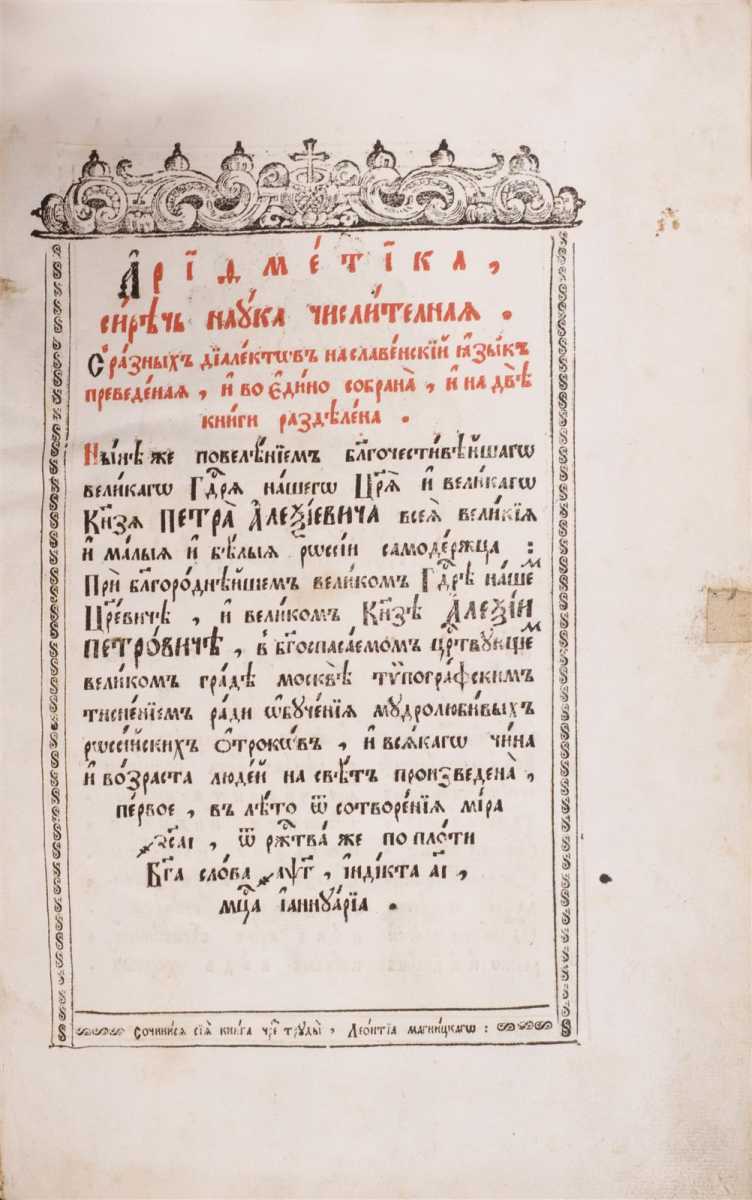 А҆рїѳме́тїка,
си́рѣчь наꙋ́ка числи́телная.
С̾ ра́зныхъ дїале́ктѡвъ на славе́нскїй ꙗ҆зы́къ
преведе́ная, и҆ во є҆ди́но собрана̀, и҆ на двѣ̀
кни́ги раздѣле́на.
Ны́нѣ же повелѣ́нїемъ бл҃гочести́вѣйшагѡ
вели́кагѡ Гдⷭ҇рѧ на́шегѡ Цр҃ѧ̀ и҆ вели́кагѡ
Кн҃зѧ ПЕТРА̀ А҆ЛЕѮІ́ЕВИЧА всеѧ̀ вели́кїѧ
и҆ ма́лыѧ и҆ бѣ́лыѧ рѡссі́и самоде́ржца:
Прѝ бл҃горо́днѣйшемъ вели́комъ Гдⷭ҇рѣ̀ на́шеⷨ
Цр҃е́вичѣ, и҆ вели́комъ Кн҃зѣ А҆ЛЕѮІ́И
ПЕТРО́ВИЧѢ, в̾ бг҃оспаса́емомъ црⷭ҇твꙋ́ющеⷨ
вели́комъ гра́дѣ москвѣ̀ тѷпогра́фскимъ
тисне́нїемъ ра́ди ѡ҆бꙋче́нїѧ мꙋдролюби́выхъ
рѡссі́йскихъ ѻ҆́трокѡвъ, и҆ всѧ́кагѡ чи́на
и҆ во́зраста люде́й на свѣ́тъ произведена̀,
пе́рвое, въ лѣ́то ѿ сотворе́нїѧ мі́ра
҂зсаі, ѿ ржⷭ҇тва́ же по пло́ти
Бг҃а сло́ва ҂аѱг҃, і҆ндї́кта аі҃,
мцⷭ҇а і҆аннꙋа́рїа.
Сочини́сѧ сїѧ̀ кни́га чреⷥ трꙋды̀, Лео́нтїа магни́цкагѡ: